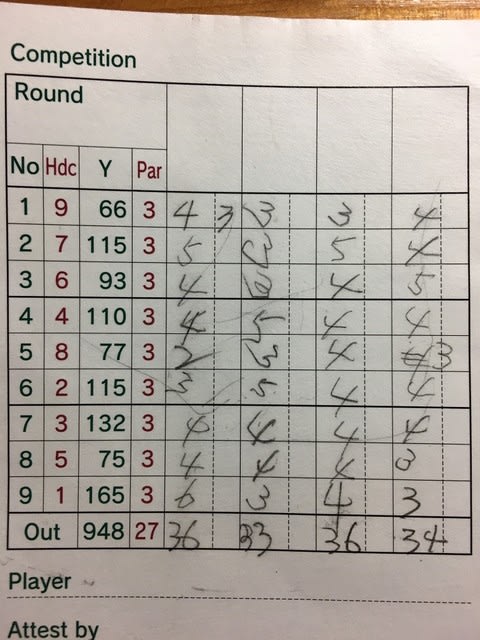 Competition
Round
No Hdc Y Par
1 9 66 3 4 3 3 3 4
2 7 115 3 5 3 5 4
3 6 93 3 4 4 5
4 4 110 3 4 5 4 4
5 8 77 3 2 3 4 3
6 2 115 3 3 5 4 4
7 3 132 3 4 4 4 4
8 5 75 3 4 4 4 3
9 1 165 3 6 3 4 3
Out 948 27 36 33 36 34
Player
Attest by